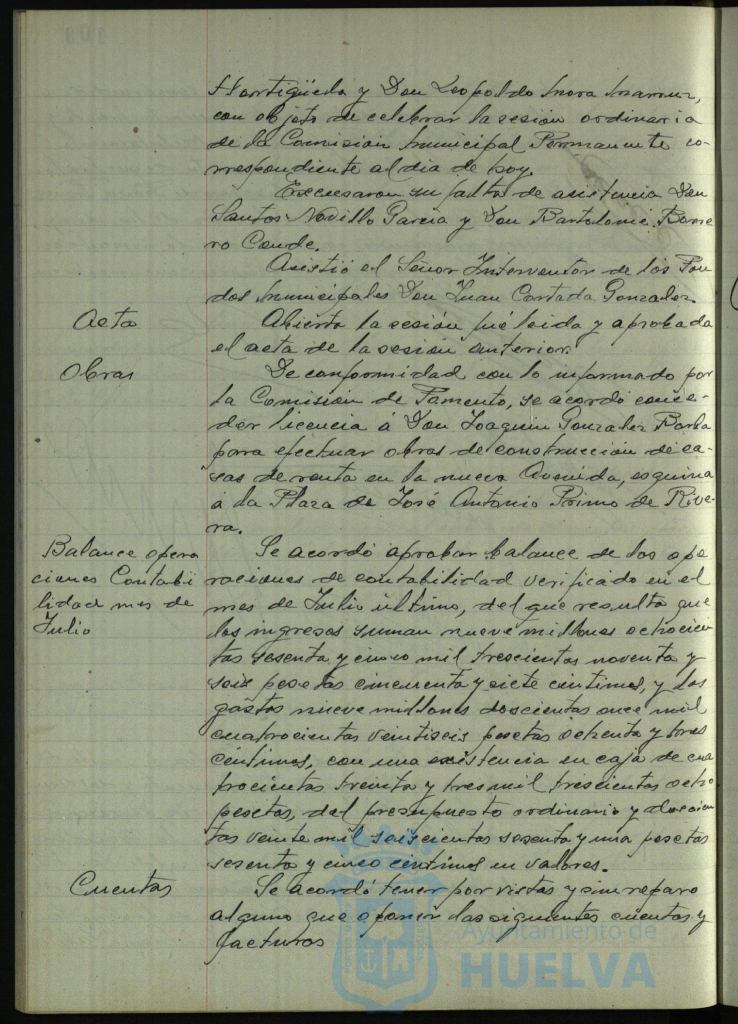 Hortigüela y Don Leopoldo Mora
con objeto de celebrar la sesión ordinaria
de la Comisión Municipal Permanente co-
rrespondiente al dia de hoy.
Excusaron su falta de asistencia Don
Santos Novillo Garcia y Don Bartolomé Borre
ro Conde.
Asistió el Señor Interventor de los Fon
dos Municipales Don Juan Cortada Gonzalez.
Acta
Abierta la sesión fué leida y aprobada
el acta de la sesión anterior.
Obras
De conformidad con lo informado por
la Comisión de Fomento, se acordó conce-
der licencia á Don Joaquin Gonzalez Barba
para efectuar obras de construcción de ca-
sas de renta en la nueva Avenida, esquina
á la Plaza de José Antonio Primo de Rive-
ra.
Balance opera
ciones Contabi
lidad mes de
Julio
Se acordó aprobar balance de las ope
raciones de contabilidad verificado en el
mes de Julio último, del que resulta que
los ingresos suman nueve millones ochocien
tas sesenta y cinco mil trescientas noventa y
seis pesetas cincuenta y siete centimos, y los
gastos nueve millones doscientas once mil
cuatrocientas veintiseis pesetas ochenta y tres
centimos, con una existencia en caja de cua
trocientas treinta y tres mil trescientas ocho
pesetas, del presupuesto ordinario y doscien
tas veinte mil seiscientas sesenta y una pesetas
sesenta y cinco centimos en valores.
Cuentas
Se acordó tener por vistas y sin reparo
alguno que oponer las siguientes cuentas y
facturas
Ayuntamiento de
HUELVA